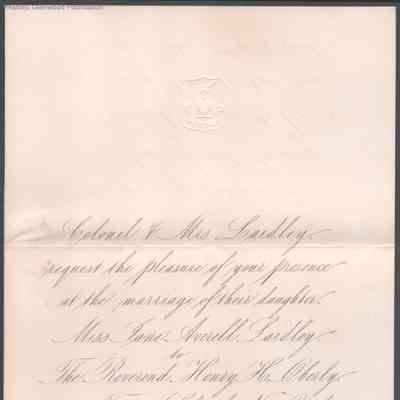 Historic Glenwood Foundation
Colonel & Mrs Laidley
request the pleasure of your presence
at the marriage of their daughter
Miss Jane Averell Laidley
to
The Reverend Henry H. Oberly